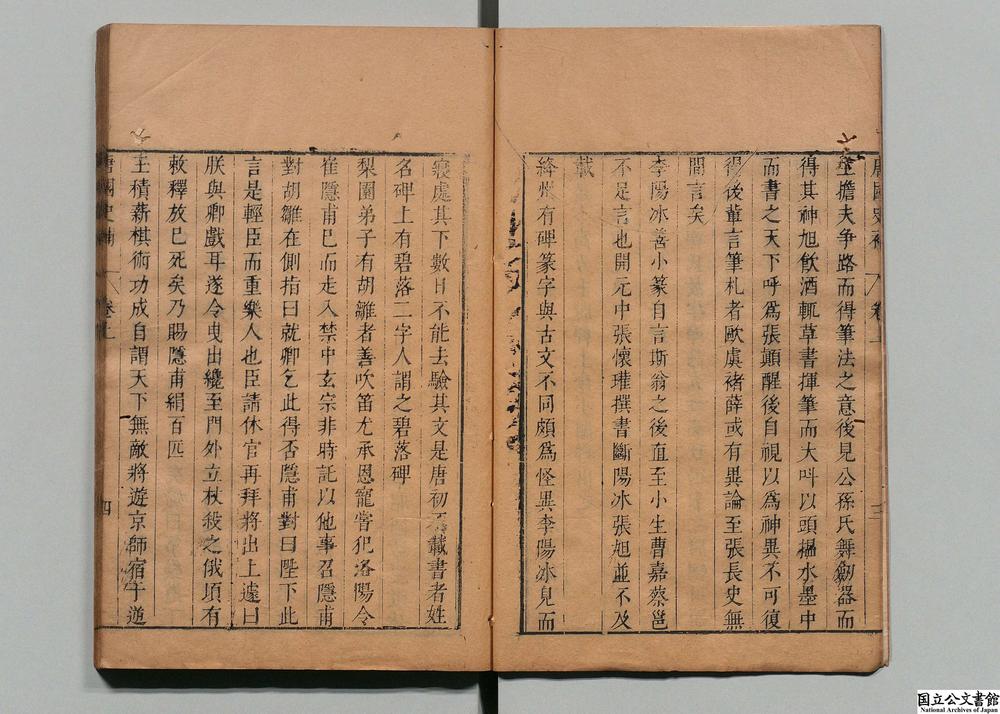 唐國史補 卷上 三
主擔夫争路而得筆法之意後見公孫氏舞劒器而
得其神旭飲酒輒草書揮筆而大呌以頭揾水墨中
而書之天下呼爲張顛醒後自視以爲神異不可復
得後軰言筆札者歐虞褚薛或有異論至張長史無
間言矣
李陽冰善小篆自言斯翁之後直至小生曹嘉蔡邕
不足言也開元中張懷瓘撰書斷陽冰張旭並不及
載
絳州有碑篆字與古文不同頗爲怪異李陽冰見而
寢處其下數日不能去驗其文是唐初不載書者姓
名碑上有碧落二字人謂之碧落碑
梨園弟子有胡雛者善吹笛尤承恩寵甞犯洛陽令
崔隱甫巳而走入禁中玄宗非時託以他事召隱甫
對胡雛在側指曰就卿乞此得否隱甫對曰陛下此
言是輕臣而重樂人也臣請休官再拜將出上遽曰
朕與卿戲耳遂令曳出纔至門外立杖殺之俄頃有
敕釋放巳死矣乃賜隱甫絹百匹
王積薪棋術功成自謂天下無敵將遊京師宿于逆
唐國史補 卷上 四
国立公文書館
National Archives of Japan